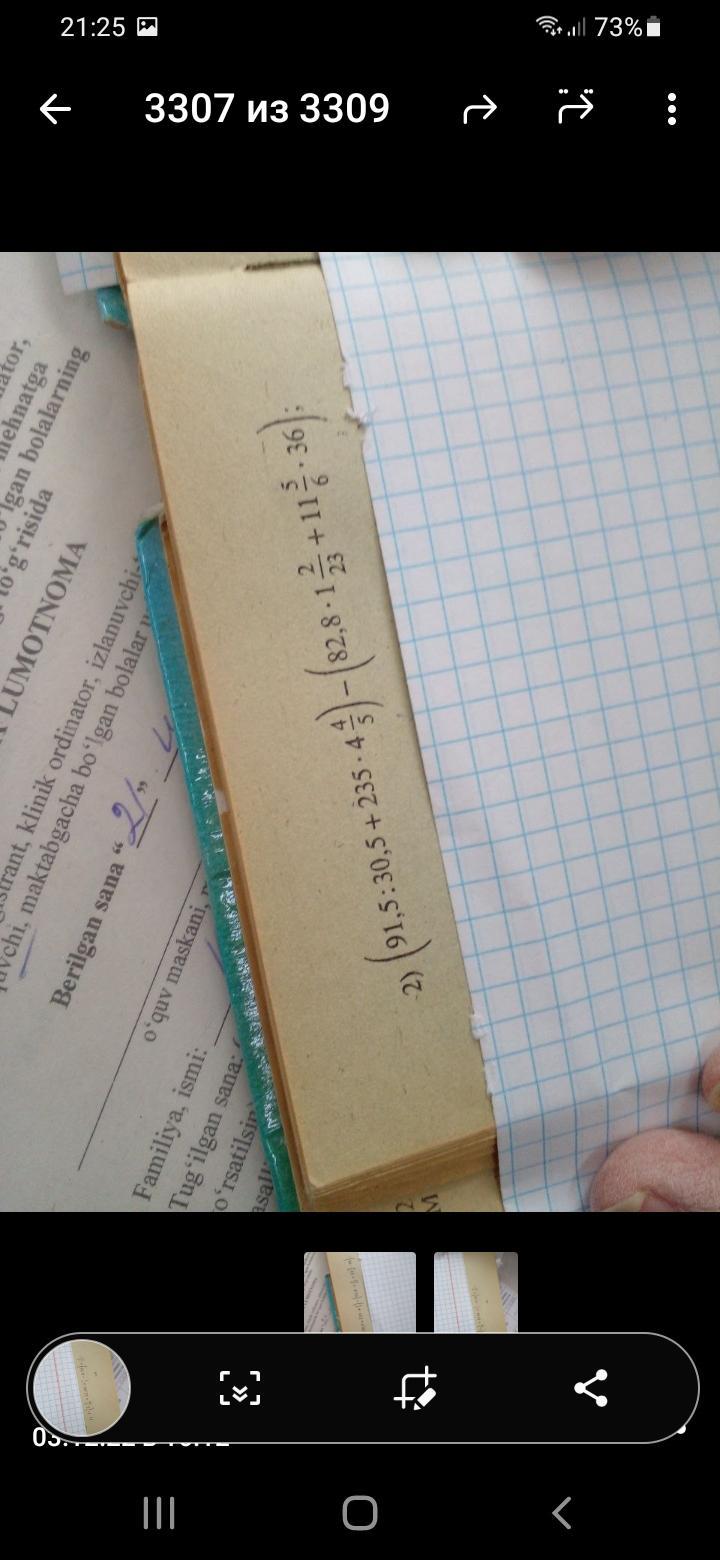 21:25 73%
3307 из 3309
2) (91,5:30,5+235·4 4/5)−(82,8·1 2/23+11 5/6·36);
ator,
mehnatga
lgan bolalarning
to‘g‘risida
LUMOTNOMA
klinik ordinator, izlanuvchi,
maktabgacha bo‘lgan bolalar
Berilgan sana “21”
o‘quv maskani,
Familiya, ismi:
Tug‘ilgan sana: